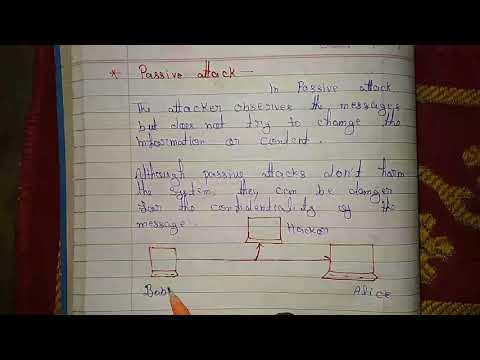 * Passive attack —
In Passive attack
The attacker observes the messages
but does not try to change the
information or content.
Although passive attacks don't harm
the system, they can be danger
for the confidentiality of the
message.
Hacker
Bob
Alice